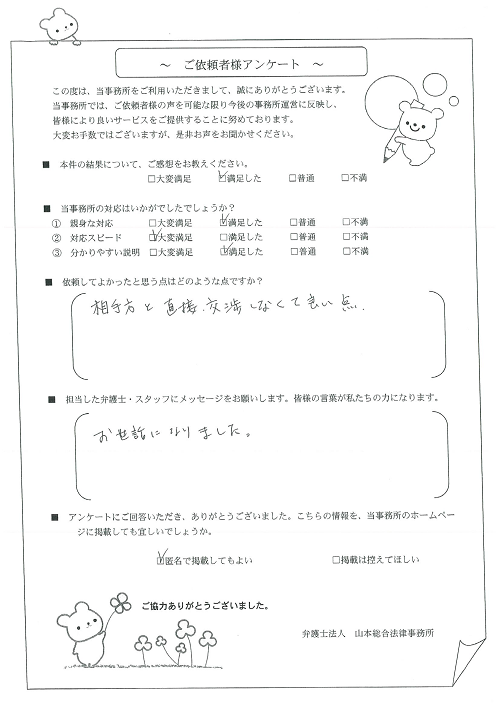 ～ ご依頼者様アンケート ～
この度は、当事務所をご利用いただきまして、誠にありがとうございます。
当事務所では、ご依頼者様の声を可能な限り今後の事務所運営に反映し、
皆様により良いサービスをご提供することに努めております。
大変お手数ではございますが、是非お声をお聞かせください。
■ 本件の結果について、ご感想をお教えください。
□大変満足 ☑満足した □普通 □不満
■ 当事務所の対応はいかがでしたでしょうか？
① 親身な対応 □大変満足 ☑満足した □普通 □不満
② 対応スピード ☑大変満足 □満足した □普通 □不満
③ 分かりやすい説明 □大変満足 ☑満足した □普通 □不満
■ 依頼してよかったと思う点はどのような点ですか？
相手方と直接交渉しなくて良い点.
■ 担当した弁護士・スタッフにメッセージをお願いします。皆様の言葉が私たちの力になります。
お世話になりました。
■ アンケートにご回答いただき、ありがとうございました。こちらの情報を、当事務所のホームペー
ジに掲載しても宜しいでしょうか。
☑匿名で掲載してもよい □掲載は控えてほしい
ご協力ありがとうございました。
弁護士法人 山本総合法律事務所